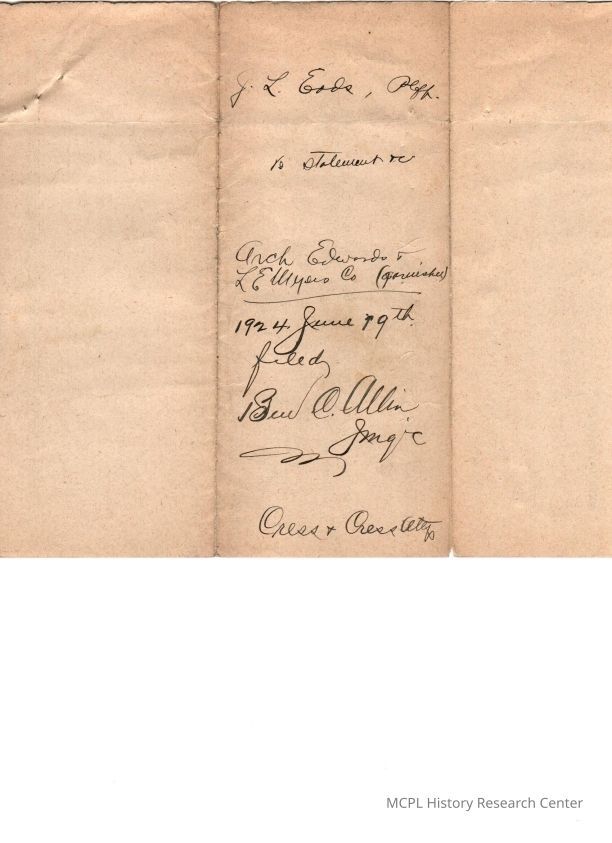 J. L. Eads, Plff.
vs statement &c
Arch Edwards &
L E Myers Co (garnishee)
1924 June 19th
filed
Ben C. Allin
Cress & Cress Attys
MCPL History Research Center